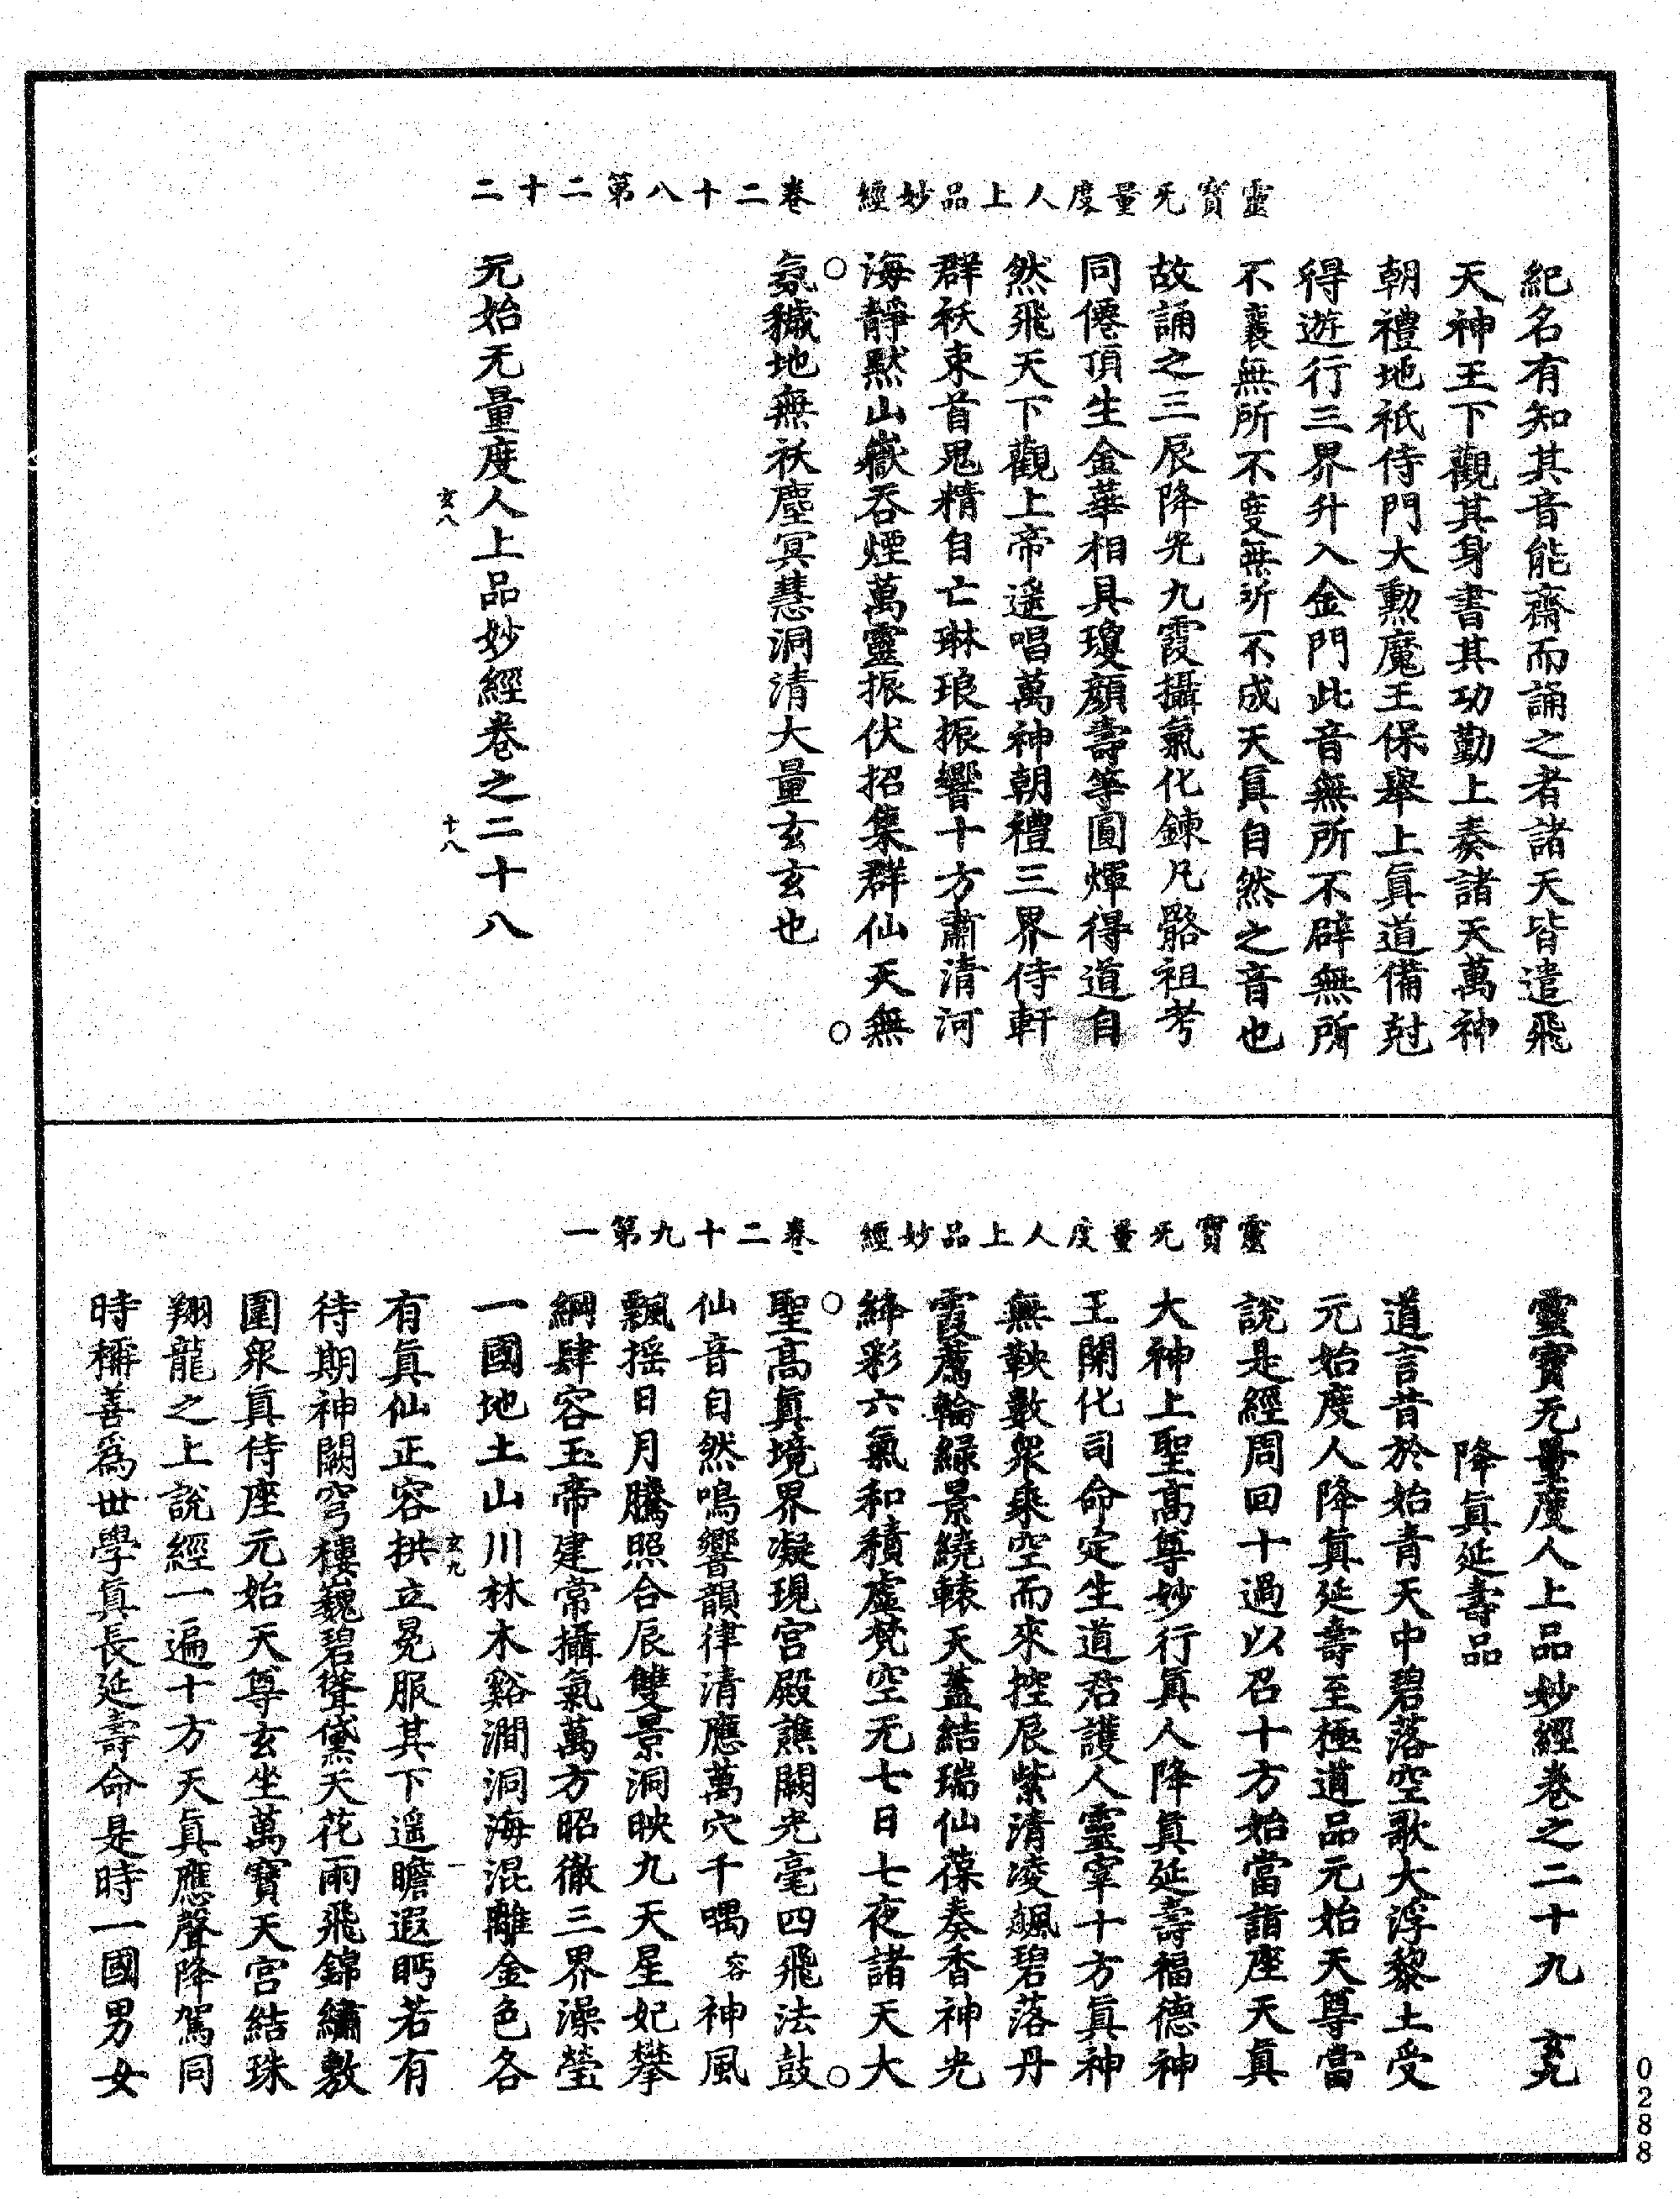 靈寶无量度人上品妙經　卷二十八第二十二
紀名有知其音能齋而誦之者諸天皆遣飛
天神王下觀其身書其功勤上奏諸天萬神
朝禮地祇侍門大勳魔王保舉上眞道備尅
得遊行三界升入金門此音無所不辟無所
不禳無所不度無所不成天眞自然之音也
故誦之三辰降光九霞攝氣化鍊凡骼祖考
同僊頂生金華相具瓊顏壽等圓煇得道自
然飛天下觀上帝遥唱萬神朝禮三界侍軒
群袄束首鬼精自亡琳琅振響十方肅清河
海靜默山嶽吞煙萬靈振伏招集群仙天無
氛穢地無袄塵冥慧洞清大量玄玄也
元始无量度人上品妙經卷之二十八
玄八　十八
靈寶无量度人上品妙經　卷二十九第一
靈寶无量度人上品妙經卷之二十九　玄九
降眞延壽品
道言昔於始青天中碧落空歌大浮黎土受
元始度人降眞延壽至極道品元始天尊當
說是經周回十過以召十方始當詣座天眞
大神上聖高尊妙行眞人降眞延壽福德神
王開化司命定生道君護人靈宰十方眞神
無鞅數衆乘空而來控辰紫清凌飆碧落丹
霞薦輪綠景繞轅天蓋結瑞仙葆奏香神光
絳彩六氣和積虛梵空无七日七夜諸天大
聖高眞境界凝現宫殿譙闕光毫四飛法鼓
仙音自然鳴響韻律清應萬穴千喁容神風
飄摇日月騰照合辰雙景洞映九天星妃攀
綱肆容玉帝建常攝氣萬方昭徹三界澡瑩
一國地土山川林木谿澗洞海混離金色各
玄九　一
有眞仙正容拱立冕服其下遥瞻遐眄若有
待期神闕穹樓巍碧聳黛天花雨飛錦繡敷
圍衆眞侍座元始天尊玄坐萬寶天宫結珠
翔龍之上說經一遍十方天眞應聲降駕同
時稱善爲世學眞長延壽命是時一國男女
0288